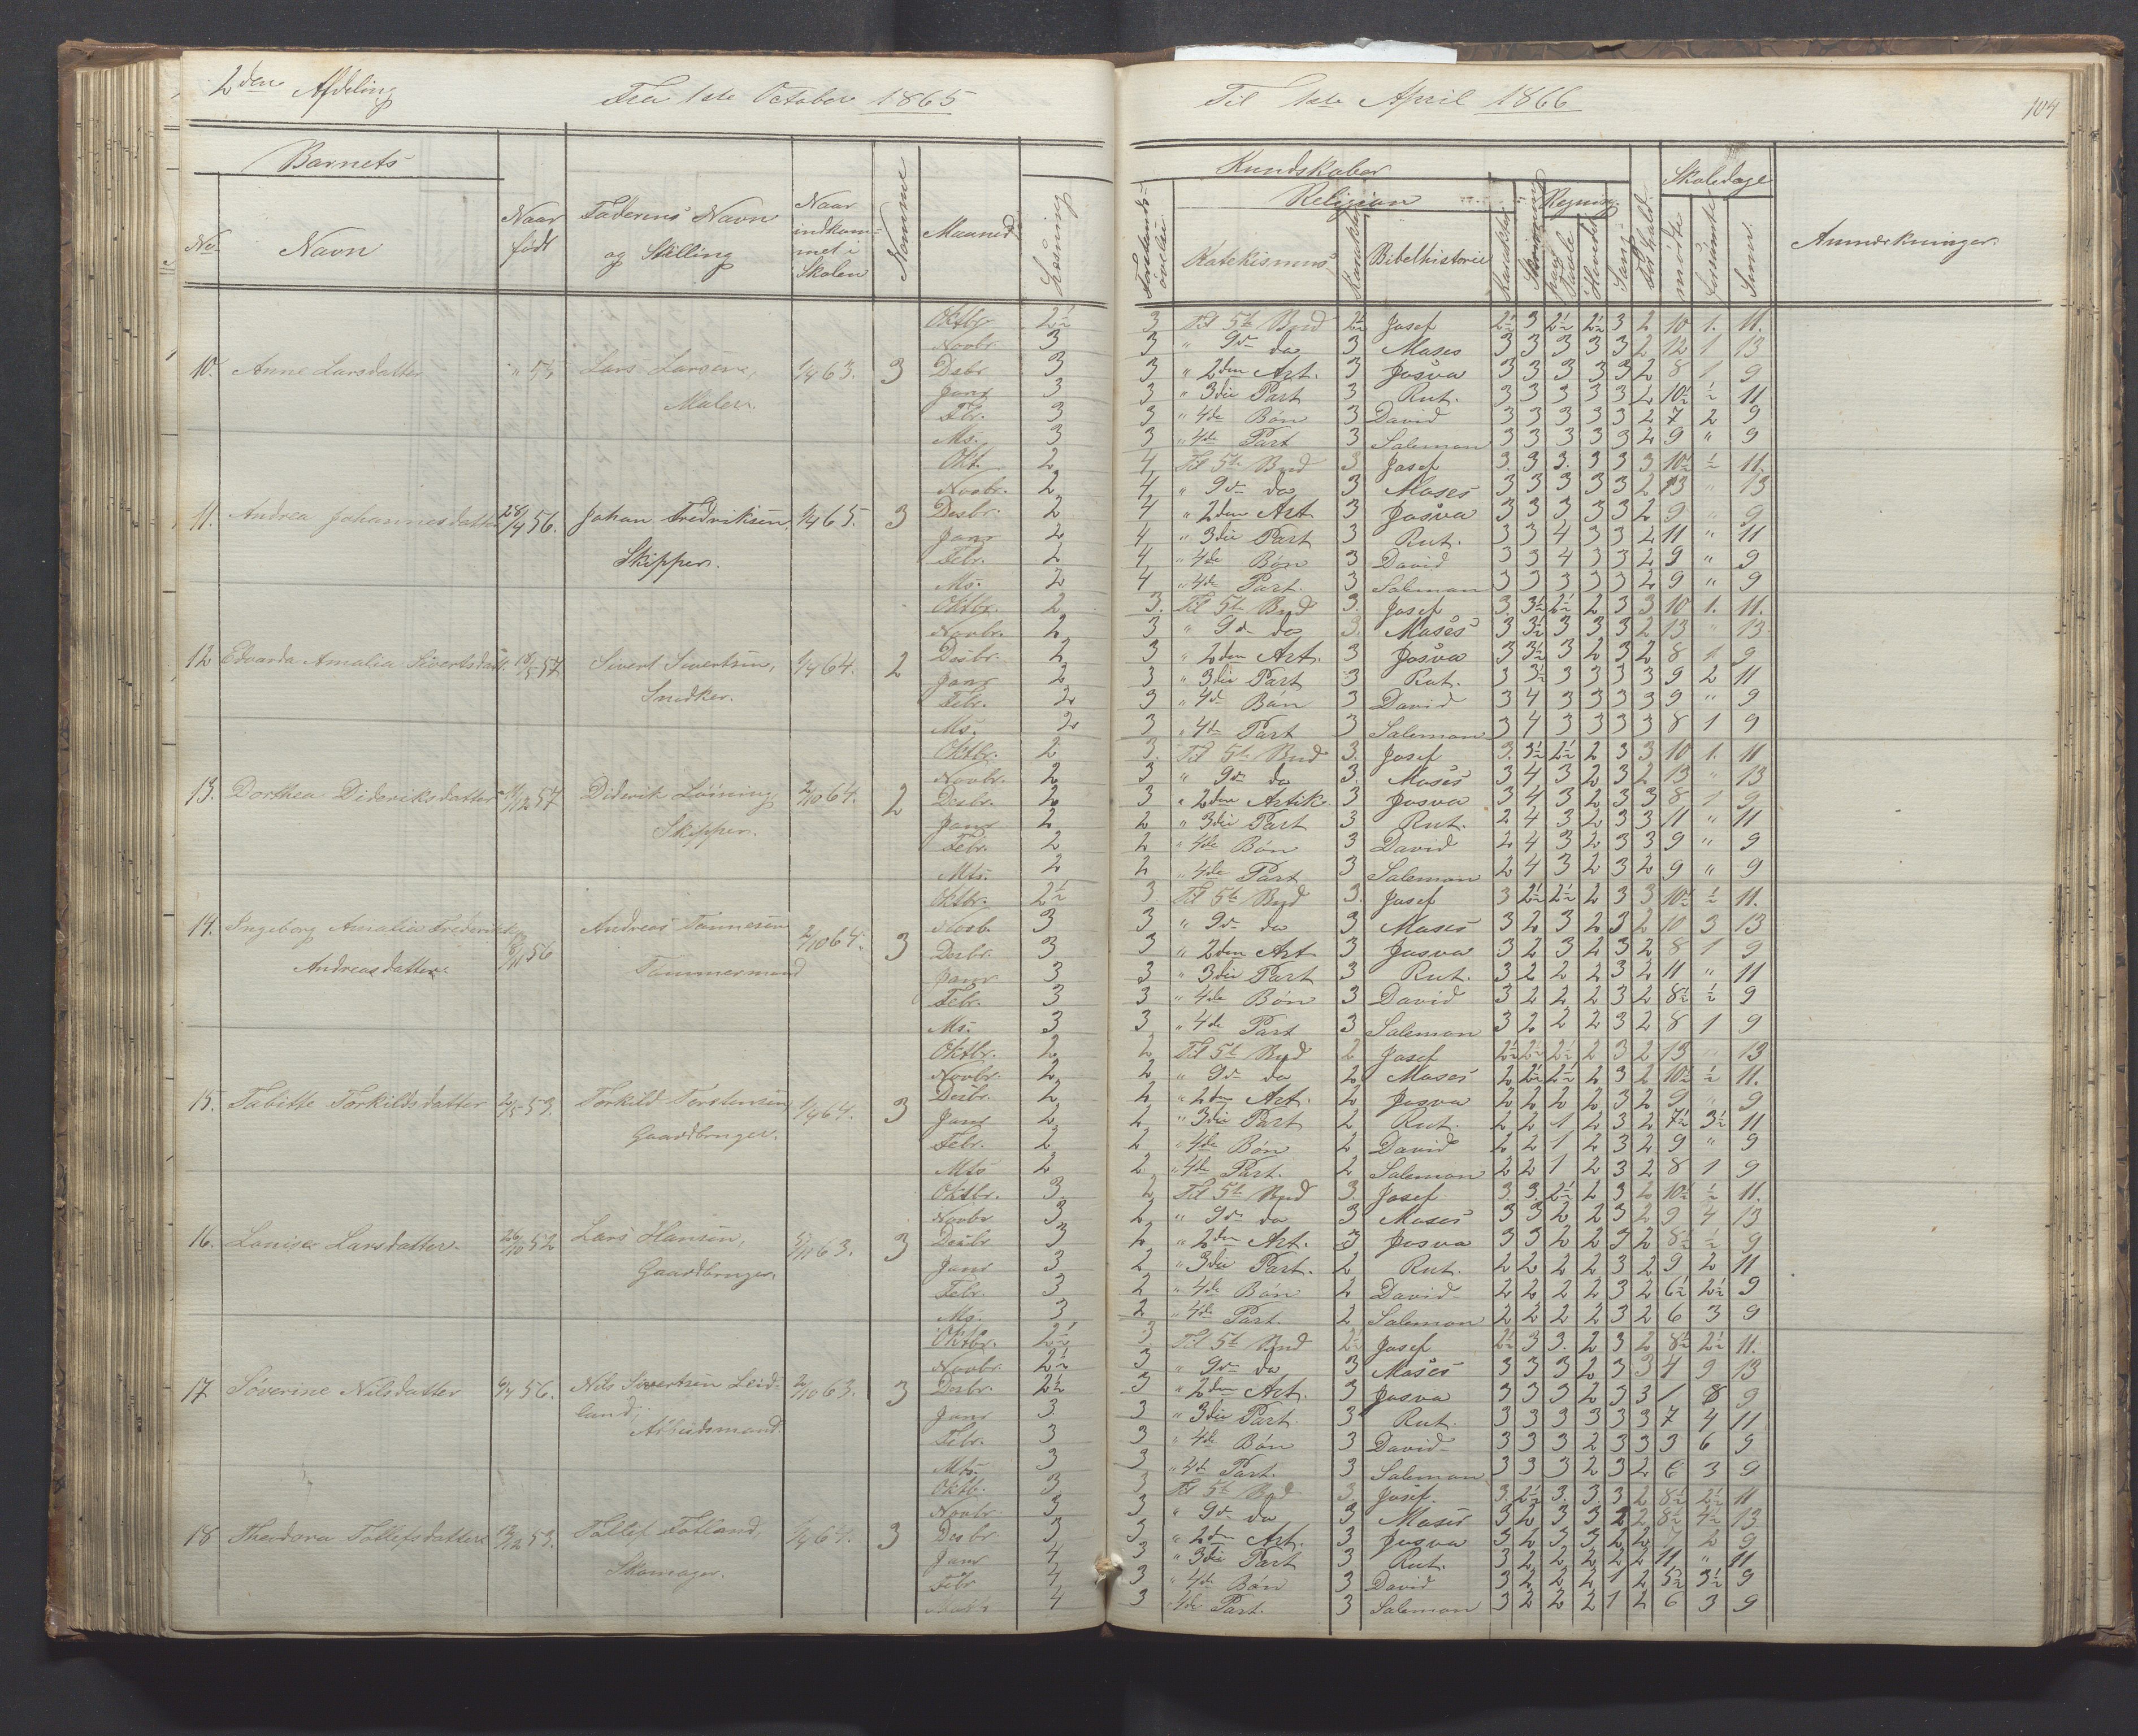 2den Afdeling
Fra 1ste October 1865
Til 1ste April 1866
104
Barnets
No.
Navn
Naar født
Faderens Navn og Stilling
Naar indkommet i Skolen
Nomme
Maaned
Læsning
Forstandsøvelse
Kundskaber
Religion
Katekismus
Karakter
Bibelhistorie
Karakter
Skrivning
Regning
paa Tavle
i Hovedet
Sang
Forhold
Skoledage
mødte
forsømte
Sum
Anmærkninger.
10. Anne Larsdatter " 55 Lars Larsen, Maler. 1/4 63. 3
Oktbr 2½ 3 Til 5te Bud 2½ Josef 2½ 3 2½ 2½ 3 2 10 1. 11.
Novbr. 3 3 " 9de do 3 Moses 3 3 3 3 3 2 12 1 13
Desbr 3 3 " 2den Art. 3 Josva 3 3 3 3 3 2 8 1 9
Janr 3 3 " 3die Part 3 Rut. 3 3 3 3 3 2 10½ ½ 11
Fbr. 3 3 " 4de Bøn 3 David 3 3 3 3 3 2 7 2 9
Ms. 3 3 " 4de Part 3 Salemon 3 3 3 3 3 2 9 " 9
11. Andrea Johannesdatter 28/4 56. Johan Fredriksen, Skipper. 1/4 65. 3
Okt. 2 4 Til 5te Bud 3. Josef 3. 3 3. 3 3 3 10½ ½ 11.
Novbr. 2 4 " 9de do 3 Moses 3 3 3 3 3 2 13 " 13
Desbr. 2 4 " 2den Art 3 Josva 3 3 3 3 3 2 9 9
Janr 2 4 " 3die Part 3 Rut. 3 3 4 3 3 2 11 " 11
Febr. 2 4 " 4de Bøn 3 David 3 3 4 3 3 2 9 " 9
Ms. 2 4 " 4de Part. 3 Salemon 3 3 3 3 3 2 9 " 9
12 Edvarda Amalia Sivertsdatt. 18/5 57 Sivert Sivertsen, Snedker. 1/4 64. 2
Oktbr. 2 3. Til 5te Bud 3. Josef 3. 3½ 2½ 2 3 3 10 1. 11.
Novbr. 2 3 " 9de do 3. Moses 3 3½ 3 3 3 2 13 " 13
Desbr. 2 3 " 2den Art. 3 Josva 3 3½ 3 2 3 2 8 1 9
Janr 2 3 " 3die Part 3 Rut. 3 3½ 3 3 3 3 9 2 11
Febr. 2 3 " 4de Bøn 3 David 3 4 3 3 3 3 9 " 9
Ms. 2 3 " 4de Part 3 Salemon 3 4 3 3 3 3 8 1 9
13. Dorthea Dideriksdatter 11/12 57 Diderik Løining, Skipper. 2/10 64. 2
Oktbr. 2 3. Til 5te Bud 3. Josef 3. 3½ 2½ 2 3 3 10 1. 11
Novbr. 2 3 " 9de do 3. Moses 3 4 3 2 3 2 13 " 13
Desbr. 2 3 " 2den Artik. 3 Josva 3 4 3 2 3 3 8 1 9
Janr 2 2 " 3die Part 3 Rut. 2 4 3 2 3 3 11 " 11
Febr. 2 2 " 4de Bøn 3 David 2 4 3 2 3 3 9 " 9
Mts. 2 2 " 4de Part 3 Salemon 2 4 3 2 3 2 9 " 9
14. Ingeborg Amalia Frederikke Andreasdatter. 8/11 56 Andreas Tønnesen Tømmermand 2/10 64. 3
Oktbr. 2½ 3. Til 5te Bud 3. Josef 3 2½ 2½ 2 3 3 10½ ½ 11.
Novb. 3 3 " 9de do 3 Moses 3 2 3 2 3 2 10 3 13
Desbr. 3 3 " 2den Art 3 Josva 3 2 3 2 3 2 8 1 9
Janr. 3 3 " 3die Part 3 Rut. 3 2 2 2 3 2 11 " 11
Febr. 3 3 " 4de Bøn 3 David 3 2 2 2 3 2 8½ ½ 9
Ms. 3 3 " 4de Part 3 Salemon 3 2 2 2 3 2 8 1 9
15. Tabitte Torkildsdatter 2/5 53. Torkild Torstensen, Gaardbruger. 1/4 64. 3
Oktbr. 2 2 Til 5te Bud 2 Josef 2½ 2½ 2½ 2 3 2 13 " 13
Novbr. 2 2 " 9de do 2 Moses 2 2½ 2½ 2 3 2 10½ ½ 11.
Desbr. 2 2 " 2den Art. 2 Josva 2 2 2 2 3 2 9 " 9
Janr 2 2 " 3die Part 2 Rut. 2 2 1 2 3 2 7½ 3½ 11
Febr. 2 2 " 4de Bøn 2 David 2 2 1 2 3 2 9 " 9
Mts 2 2 " 4de Part. 2 Salemon 2 2 1 2 3 2 8 1 9
16. Louise Larsdatter. 26/10 52 Lars Hansen, Gaardbruger. 5/10 63. 3
Oktbr. 3 2 Til 5te Bud 3. Josef 3. 3. 2½ 2 3 2 10½ ½ 11.
Novbr 3 2 " 9de do 3 Moses 3 3 2 2 3 2 9 4 13
Desbr 3 2 " 2den Art. 3 Josva 3 3 2 2 3 2 8½ ½ 9
Janr 3 2 " 3die Part. 2 Rut. 2 2 2 2 3 2 9 2 11
Febr. 3 2 " 4de Bøn 2 David 2 2 2 2 3 2 6½ 2½ 9
Ms. 3 2 " 4de Part. 2 Salemon 2 2 2 2 3 2 6 3 9
17 Søverine Nilsdatter 9/4 56. Nils Sivertsen Leidland, Arbeidsmand. 2/10 63. 3
Oktbr. 2½ 3 Til 5te Bud 2½ Josef 2½ 3 3. 2 3 2 8½ 2½ 11.
Novbr. 2½ 3 " 9de do 3 Moses 3 3 3 2 3 3 4 9 13
Desbr. 2½ 3 " 2den Art. 3 Josva 3 3 3 2 3 3 1 8 9
Janr 3 3 " 3die Part. 3 Rut. 3 3 3 3 3 3 7 4 11
Febr. 3 3 " 4de Bøn 3 David 3 3 3 2 3 3 3 6 9
Mts. 3 3 " 4de Part. 3 Salemon 3 3 3 2 3 2 6 3 9
18 Theodora Tollefsdatter 13/12 53. Tollef Fotland, Skomager. 1/4 64. 3
Oktb. 3 3 Til 5te Bud 3. Josef. 3. 2½ 3. 3. 3 2 8½ 2½ 11
Novbr 3 3 " 9de do 3 Moses 3 2 3 3 2 2 8½ 4½ 13
Desbr 3 3 " 2den Art. 3 Josva 3 2 3 3 2 2 7 2 9
Janr 4 3 " 3die Part 3 Rut. 3 2 2 2 2 2 11 " 11
Febr 4 3 " 4de Bøn 3 David 3 2 2 2 1 2 5½ 3½ 9
4 3 4de Part. 3 Salemon 3 2 2 2 1 2 6 3 9